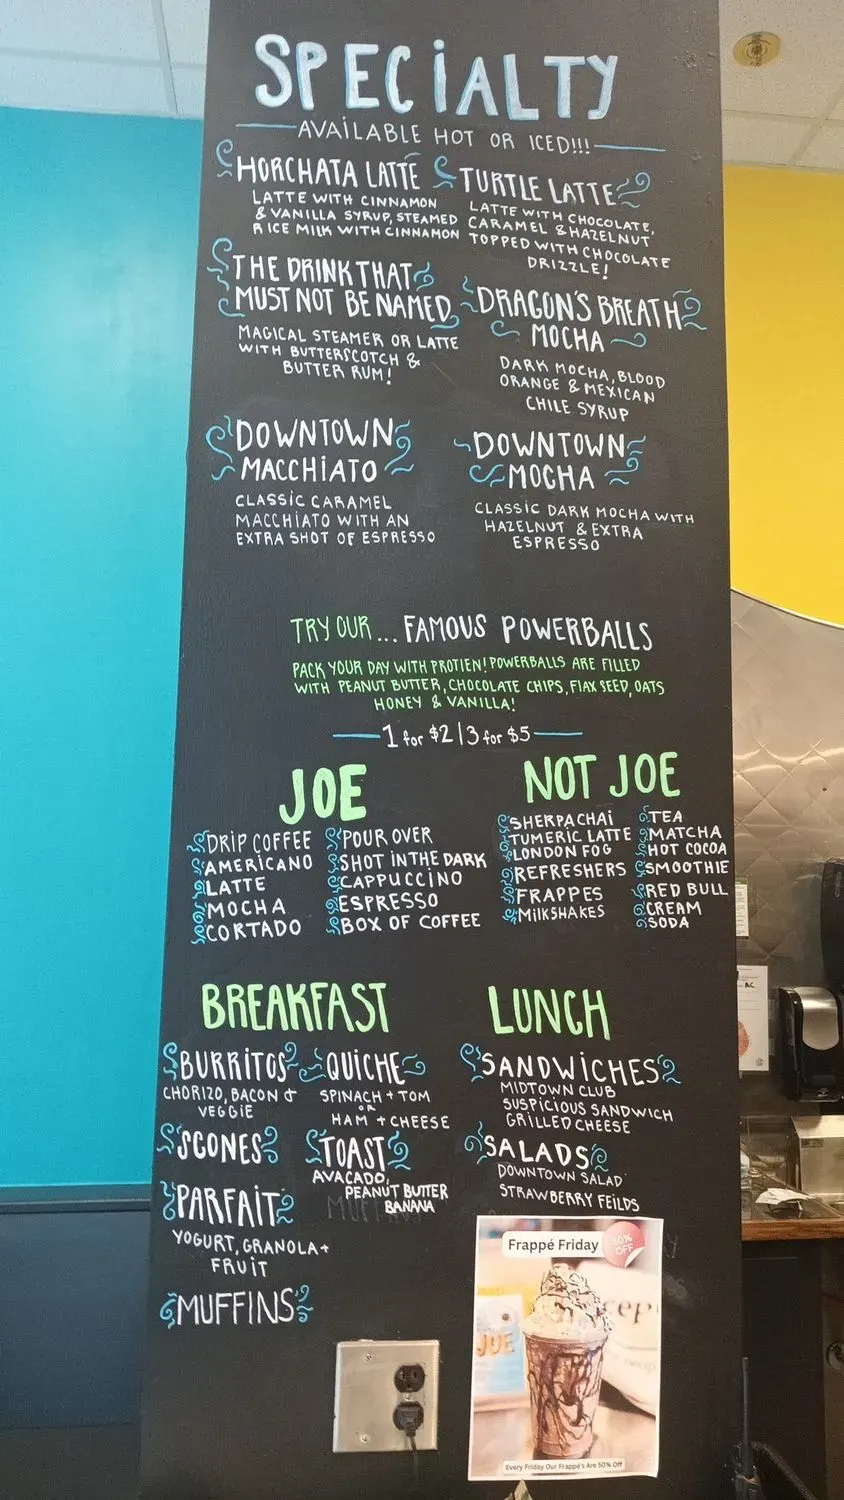 SPECIALTY
AVAILABLE HOT OR ICED!!!
HORCHATA LATTE
LATTE WITH CINNAMON
& VANILLA SYRUP, STEAMED
RICE MILK WITH CINNAMON
TURTLE LATTE
LATTE WITH CHOCOLATE,
CARAMEL & HAZELNUT
TOPPED WITH CHOCOLATE
DRIZZLE!
THE DRINK THAT
MUST NOT BE NAMED
MAGICAL STEAMER OR LATTE
WITH BUTTERSCOTCH &
BUTTER RUM!
DRAGON'S BREATH
MOCHA
DARK MOCHA, BLOOD
ORANGE & MEXICAN
CHILE SYRUP
DOWNTOWN
MACCHIATO
CLASSIC CARAMEL
MACCHIATO WITH AN
EXTRA SHOT OF ESPRESSO
DOWNTOWN
MOCHA
CLASSIC DARK MOCHA WITH
HAZELNUT & EXTRA
ESPRESSO
TRY OUR... FAMOUS POWERBALLS
PACK YOUR DAY WITH PROTIEN! POWERBALLS ARE FILLED
WITH PEANUT BUTTER, CHOCOLATE CHIPS, FLAX SEED, OATS
HONEY & VANILLA!
1 for $2 | 3 for $5
JOE
DRIP COFFEE
AMERICANO
LATTE
MOCHA
CORTADO
POUR OVER
SHOT IN THE DARK
CAPPUCCINO
ESPRESSO
BOX OF COFFEE
NOT JOE
SHERPACHAI
TUMERIC LATTE
LONDON FOG
REFRESHERS
FRAPPES
MILKSHAKES
TEA
MATCHA
HOT COCOA
SMOOTHIE
RED BULL
CREAM
SODA
BREAKFAST
BURRITOS
CHORIZO, BACON &
VEGGIE
SCONES
PARFAIT
YOGURT, GRANOLA +
FRUIT
MUFFINS
QUICHE
SPINACH + TOM
OR
HAM + CHEESE
TOAST
AVACADO,
PEANUT BUTTER
BANANA
LUNCH
SANDWICHES
MIDTOWN CLUB
SUSPICIOUS SANDWICH
GRILLED CHEESE
SALADS
DOWNTOWN SALAD
STRAWBERRY FEILDS
Frappé Friday
50%
OFF
JOE
Every Friday Our Frappé's Are 50% Off